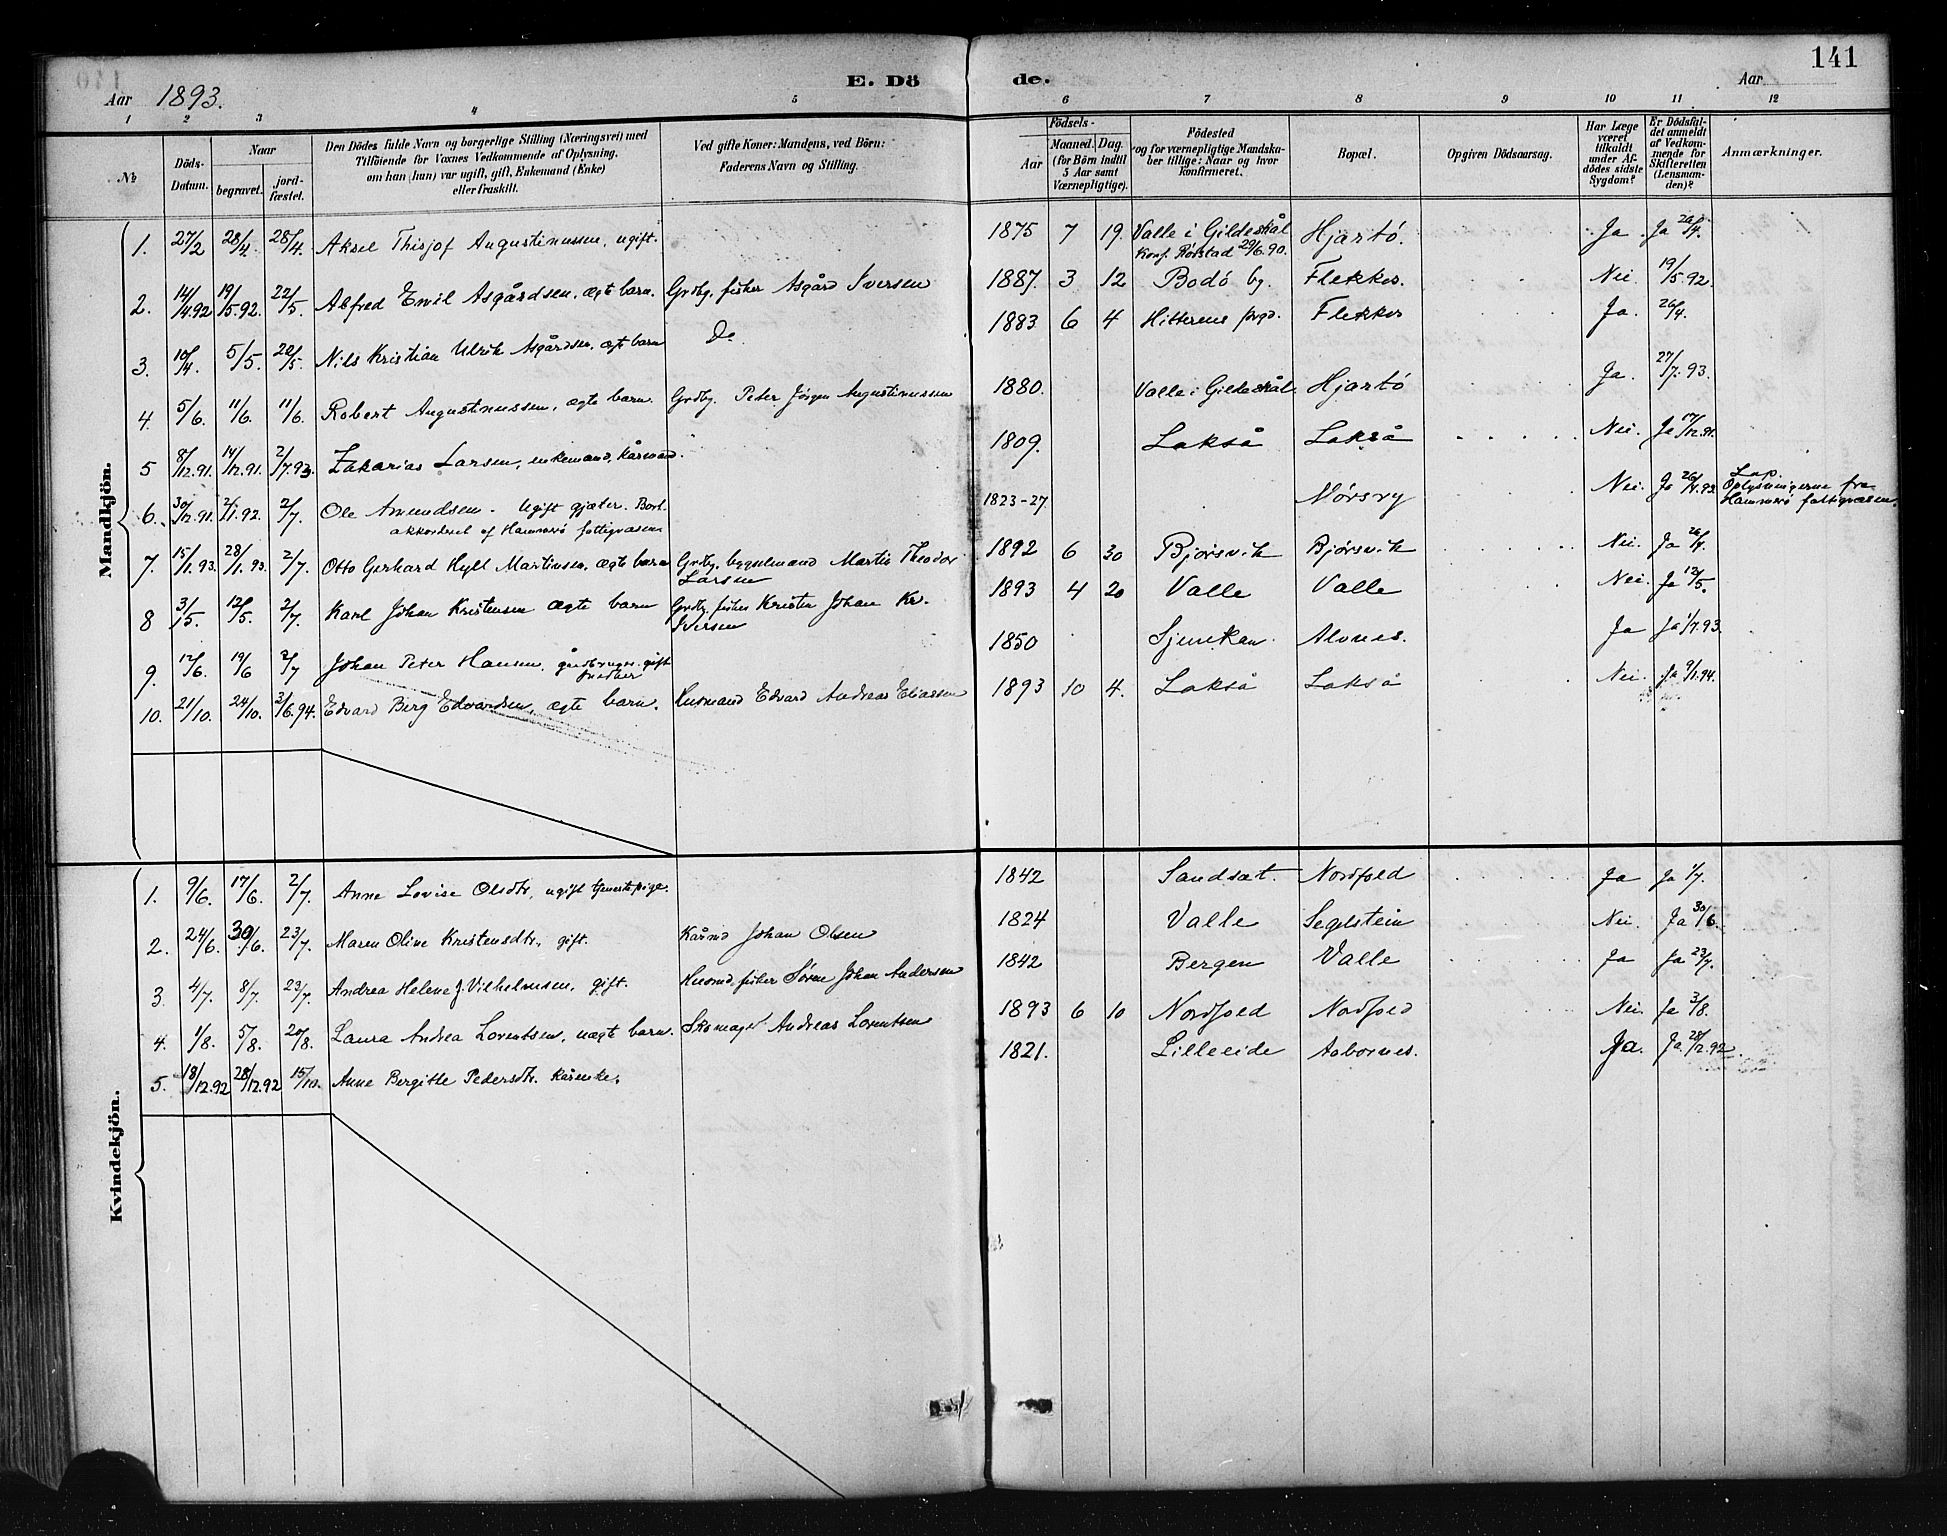 141
E. Döde.
Aar 1893. Aar
1 2 3 4 5 6 7 8 9 10 11 12
№ Döds-Datum. Naar begravet. jordfæstet. Den Dödes fulde Navn og borgerlige Stilling (Næringsvei) med Tilföiende for Voxnes Vedkommende af Oplysning, om han (hun) var ugift, gift, Enkemand (Enke) eller fraskilt. Ved gifte Koner: Mandens, ved Börn: Faderens Navn og Stilling. Födsels- Aar Maaned. Dag. (for Börn indtil 5 Aar samt Værnepligtige). Födested og for værnepligtige Mandskaber tillige: Naar og hvor konfirmeret. Bopæl. Opgiven Dödsaarsag. Har Læge været tilkaldt under Afdödes sidste Sygdom? Er Dödsfaldet anmeldt af Vedkommende for Skifteretten (Lensmanden)? Anmærkninger.
Mandkjön.
1. 27/2 28/4. 28/4. Aksel Thisjof Augustinussen, ugift. 1875 7 19. Valle i Gildeskål Konf. Rörstad 29/6.90. Hjartö. Ja Ja 26/4.
2. 14/4.92 19/5.92. 22/5. Alfred Emil Asgårdsen, ægte barn. Grdbg. fisker Asgård Iversen 1887. 3 12 Bodö by. Flekkes. Nei. 19/5.92.
3. 10/4. 5/5. 20/5. Nils Kristian Ulrik Asgårdsen, ægte barn Do 1883 6 4 Hitterens prgd. Flekkes Ja. 26/4.
4. 5/6. 11/6. 11/6. Robert Augustnussen, ægte barn. Grdbg. Peter Jörgen Augustinussen 1880. Valle i Gildeskål. Hjartö Ja. 27/7.93.
5 8/12.91. 14/12.91. 2/7.93. Zakarias Larsen, enkemand, kårmand. 1809. Lakså Lakså Nei. Ja 17/12.91.
6. 30/12.91. 2/1.92. 2/7. Ole Amundsen. Ugift gjæter. Bort akkorderet af Hammerö fattigvæsen 1823-27. Mørsvy Nei. Ja 26/4.93. Lap. Oplysningerne fra Hammerö fattigvæsen.
7. 15/1.93. 28/1.93. 2/7. Otto Gerhard Hyll Martinsen, ægte barn Grdbg. bygselmand Martin Theodor Larsen 1892 6 30 Bjørsvik Bjørsvik Nei. Ja 26/4.
8 3/5. 12/5. 2/7. Karl Johan Kristensen ægte barn Grdbg. fisker Kristen Johan Kr. Iversen 1893 4 20 Valle Valle Nei. Ja 12/5.
9. 12/6. 19/6 2/7 Johan Peter Hansen, gårdbruger. gift 1850 Alvnes. Ja Ja 1/7.93.
10. 21/10. 24/10. 3/6.94. Edvard Berg Edvardsen, ægte barn. Husmand Edvard Andreas Eliassen 1893 10 4. Lakså Lakså Nei. Ja 9/1.94.
Kvindekjön.
1. 9/6. 17/6. 2/7. Anne Lovise Olsdtr, ugift tjenestepige. 1842 Sandsæt. Nordfold Ja Ja 1/7.
2. 24/6. 30/6. 23/7. Maren Oline Kristensdtr, gift. Kårmd Johan Olsen 1824 Valle Segelstein Nei. Ja 30/6.
3. 4/7. 8/7. 23/7. Andrea Helene J. Vilhelmsen, gift. Husmd, fisker Sören Johan Andersen 1842 Bergen Valle Ja Ja 23/7.
4. 1/8. 5/8. 20/8. Laura Andrea Lorentsen, uægte barn. Skomager Andreas Lorentsen 1893 6 10 Nordfold Nordfold Nei. Ja 3/8.
5. 18/12.92 28/12.92 15/10. Anne Bergitte Pedersdtr. kårenke. 1821. Lilleeide Aabornes. Ja. Ja 28/12.92